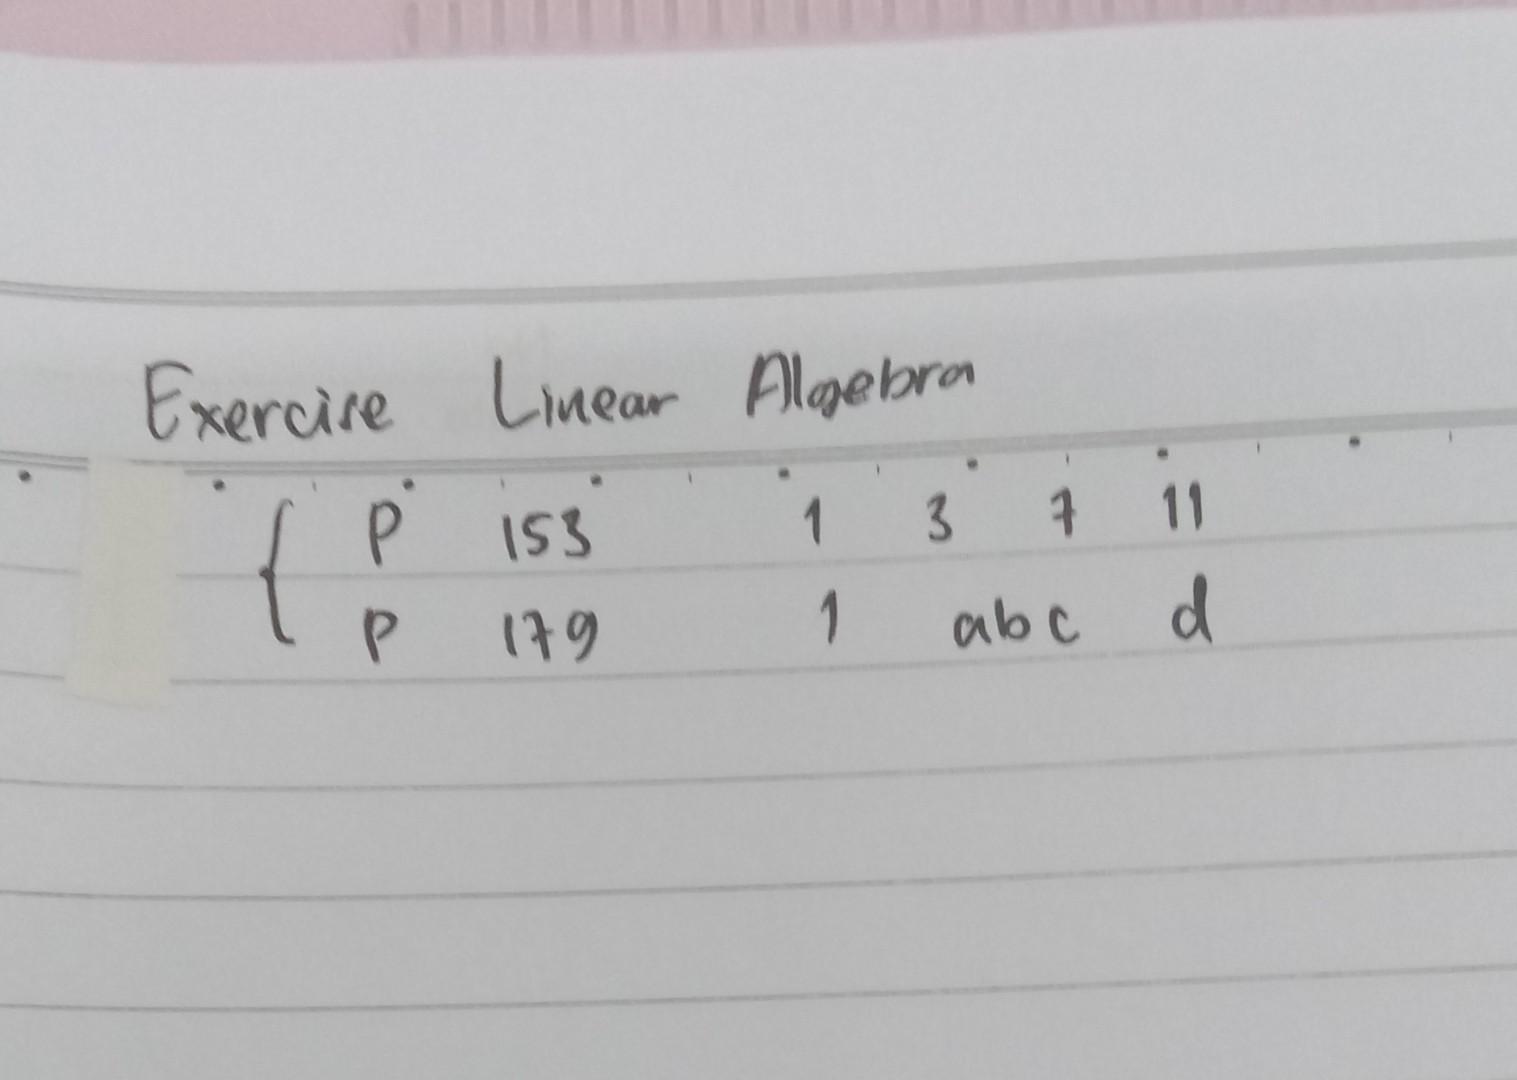 Exercise Linear Algebra
{ P 153 1 3 7 11
P 179 1 abc d